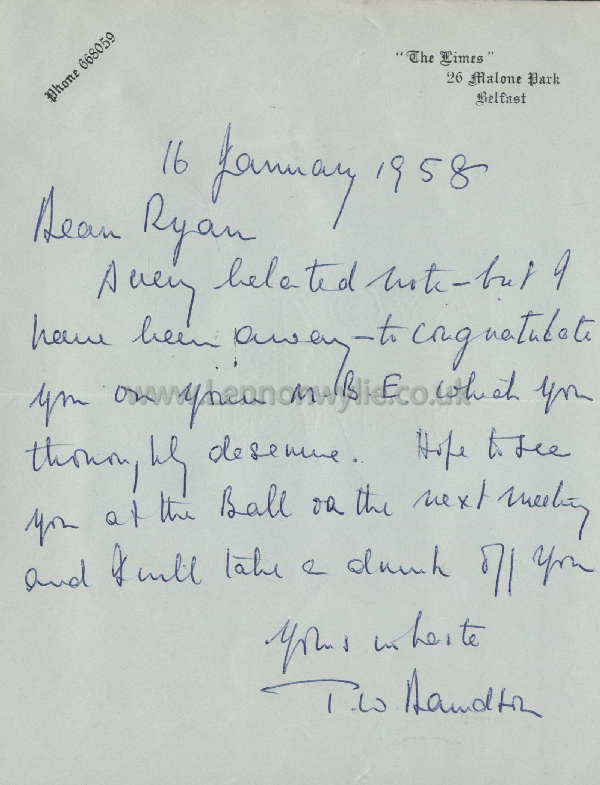 Phone 668059
"The Limes"
26 Malone Park
Belfast
16 January 1958
Dear Ryan
A very belated note – but I
have been away – to congratulate
you on your M B E which you
thoroughly deserve. Hope to see
you at the Ball or the next meeting
and I will take a drink off you
Yours in haste
T. W.
www.lennonwylie.co.uk